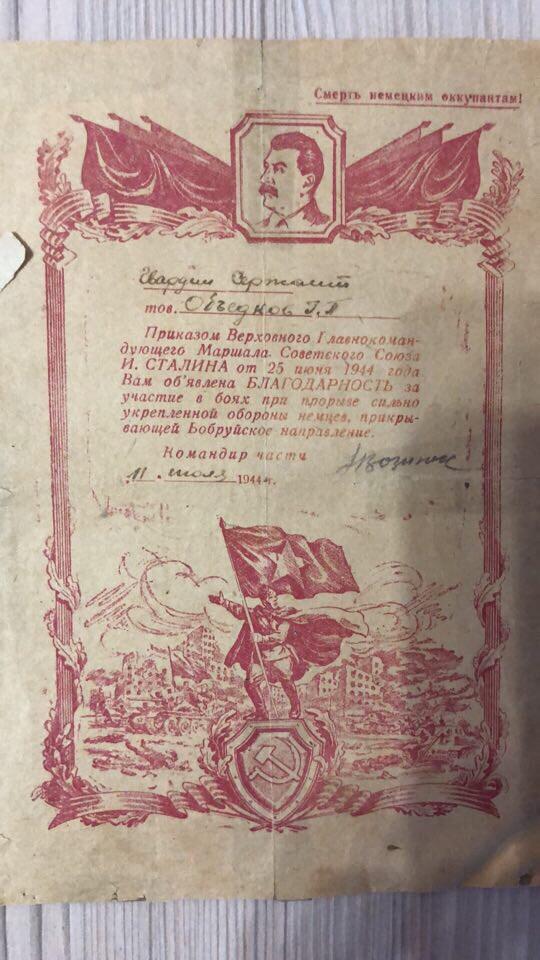 Смерть немецким оккупантам!
Гвардии Сержант
тов. Объедков Г.П
Приказом Верховного Главнокоман-
дующего Маршала Советского Союза
И. СТАЛИНА от 25 июня 1944 года
Вам об'явлена БЛАГОДАРНОСТЬ за
участие в боях при прорыве сильно
укрепленной обороны немцев, прикры-
вающей Бобруйское направление.
Командир части
11 июля 1944 г.